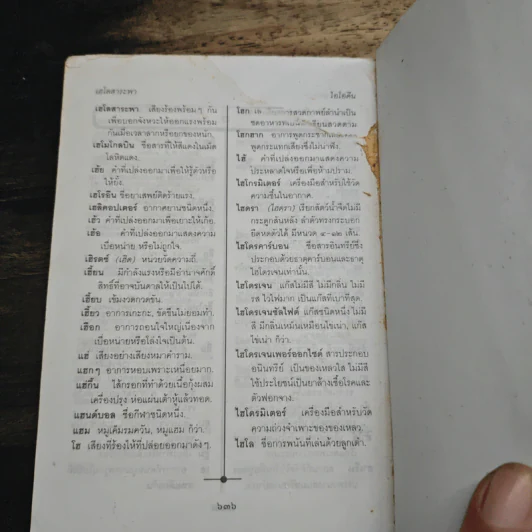 เฮโลสาระพา
ไฮโอคีน
เฮโลสาระพา เสียงร้องพร้อมๆ กัน
เพื่อบอกจังหวะให้ออกแรงพร้อม
กันเมื่อเวลาลากหรือยกของหนัก.
เฮโมโกลบิน ชื่อสารที่ให้สีแดงในเม็ด
โลหิตแดง.
เฮ้ย คำที่เปล่งออกมาเพื่อให้รู้ตัวหรือ
ให้ยั้ง.
เฮโรอีน ชื่อยาเสพย์ติดร้ายแรง.
เฮลิคอปเตอร์ อากาศยานชนิดหนึ่ง.
เฮ้ว คำที่เปล่งออกมาเพื่อเยาะให้เก้อ.
เฮ้อ คำที่เปล่งออกมาแสดงความ
เบื่อหน่าย หรือไม่ถูกใจ.
เฮิรตซ์ (เฮิด) หน่วยวัดความถี่.
เฮี้ยน มีกำลังแรงหรือมีอำนาจศักดิ์
สิทธิ์ที่อาจบันดาลให้เป็นไปได้.
เฮี้ยบ เข้มงวดกวดขัน.
เฮี้ยว อาการเกะกะ, ขัดขืนไม่ยอมทำ.
เฮือก อาการถอนใจใหญ่เนื่องจาก
เบื่อหน่ายหรือโล่งใจเป็นต้น.
แฮ่ เสียงอย่างเสียงหมาคำราม.
แฮกๆ อาการหอบเพราะเหนื่อยมาก.
แฮ่กึ๊น ไส้กรอกที่ทำด้วยเนื้อกุ้งผสม
เครื่องปรุง ห่อแผ่นเต้าหู้แล้วทอด.
แฮนด์บอล ชื่อกีฬาชนิดหนึ่ง.
แฮม หมูเค็มรมควัน, หมูแฮม ก็ว่า.
โฮ เสียงที่ร้องไห้ที่ปล่อยออกมาดังๆ.
โฮก
สวดกาพย์ลำนำเป็น
โฮกฮาก อาการพูดกระชาก
พูดกระแทกเสียงซึ่งไม่น่าฟัง.
ไฮ้ คำที่เปล่งออกมาแสดงความ
ประหลาดใจหรือเพื่อห้ามปราม.
ไฮโกรมิเตอร์ เครื่องมือสำหรับใช้วัด
ความชื้นในอากาศ.
ไฮดรา (ไฮดรา) เรียกสัตว์น้ำจืดไม่มี
กระดูกสันหลัง ลำตัวทรงกระบอก
ยืดหดตัวได้ มีหนวด ๔-๑๒ เส้น.
ไฮโดรคาร์บอน ชื่อสารอินทรีย์ซึ่ง
ประกอบด้วยธาตุคาร์บอนและธาตุ
ไฮโดรเจนเท่านั้น.
ไฮโดรเจน แก๊สไม่มีสี ไม่มีกลิ่น ไม่มี
รส ไวไฟมาก เป็นแก๊สที่เบาที่สุด.
ไฮโดรเจนซัลไฟด์ แก๊สชนิดหนึ่ง ไม่มี
สี มีกลิ่นเหม็นเหมือนไข่เน่า, แก๊ส
ไข่เน่า ก็ว่า.
ไฮโดรเจนเพอร์ออกไซด์ สารประกอบ
อนินทรีย์ เป็นของเหลวใส ไม่มีสี
ใช้ประโยชน์เป็นยาล้างเชื้อโรคและ
ตัวฟอกจาง.
ไฮโดรมิเตอร์ เครื่องมือสำหรับวัด
ความถ่วงจำเพาะของของเหลว.
ไฮโล ชื่อการพนันที่เล่นด้วยลูกเต๋า.
๖๓๖